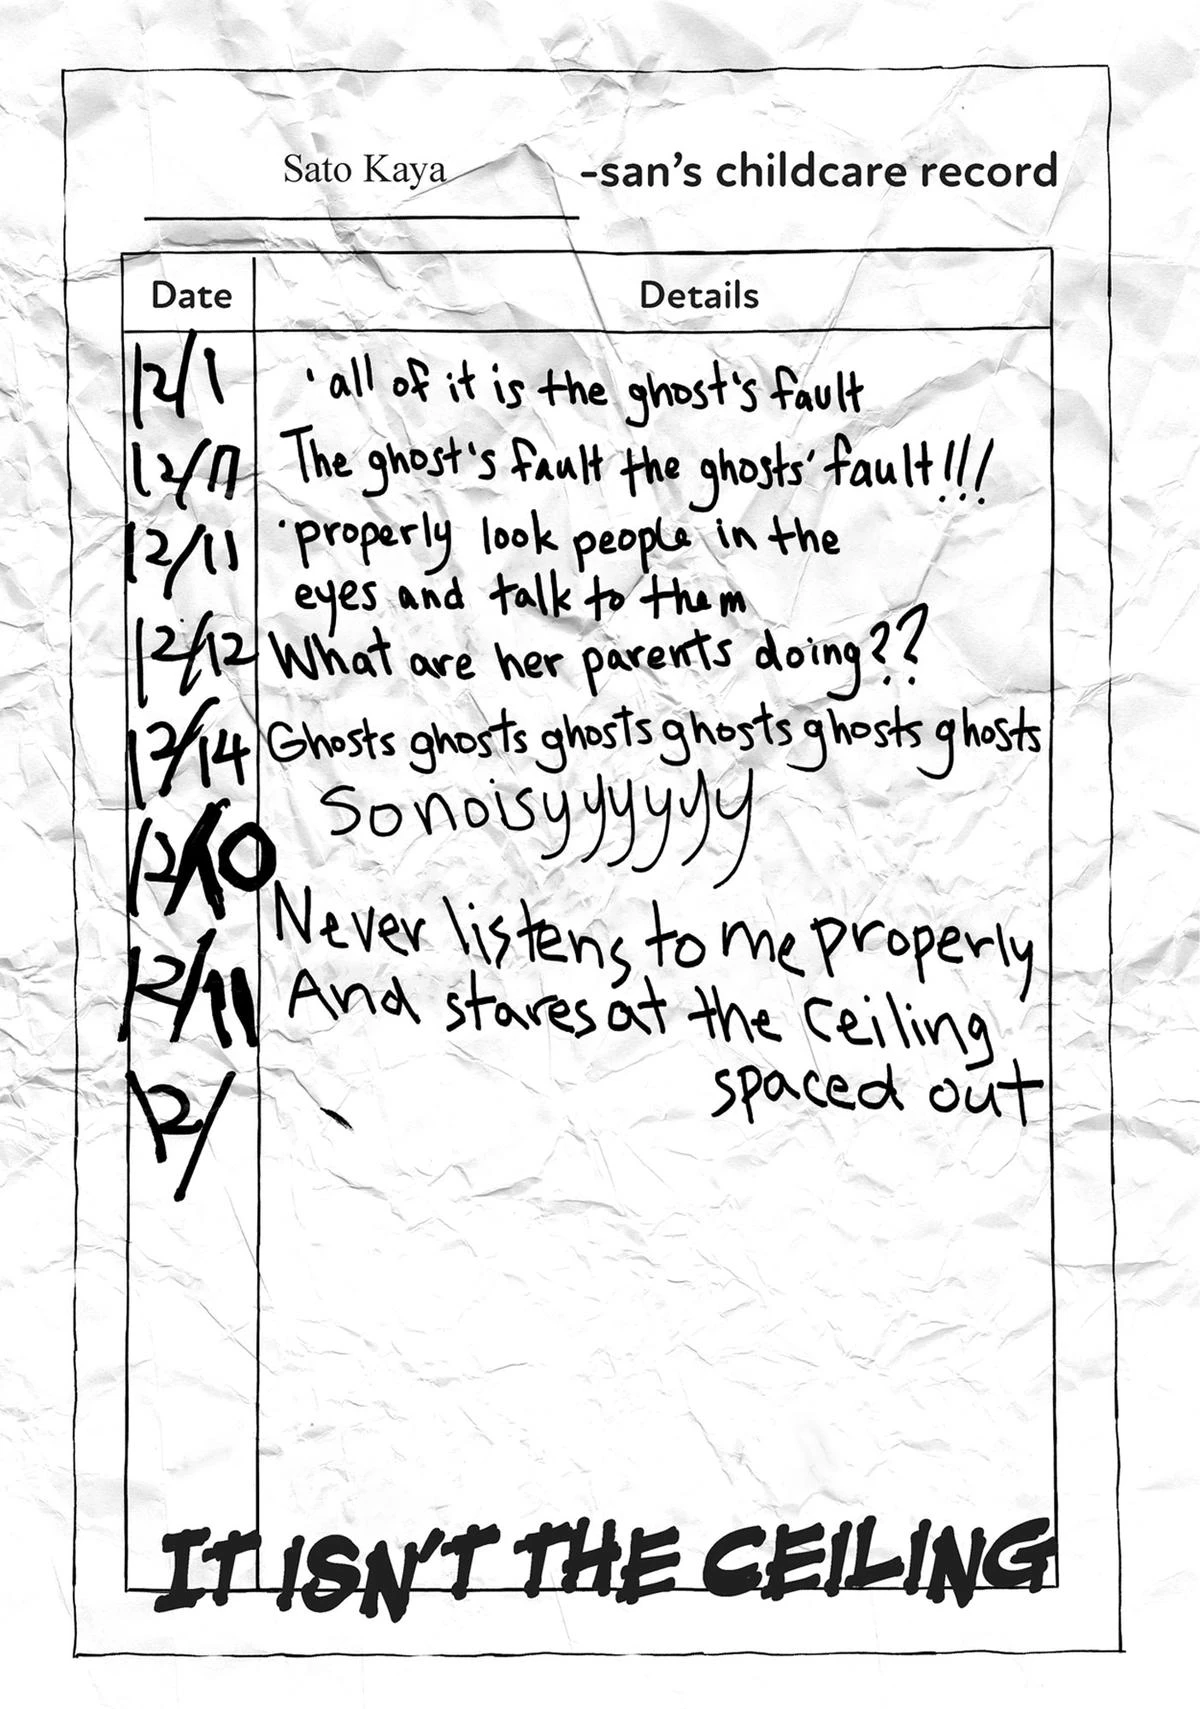 Sato Kaya -san's childcare record
Date Details
12/1 ・all of it is the ghost's fault
12/7 The ghost's fault the ghosts' fault!!!
12/11 ・properly look people in the
eyes and talk to them
12/12 What are her parents doing??
12/14 Ghosts ghosts ghosts ghosts ghosts ghosts
So noisyyyyyy
12/10
Never listens to me properly
12/11 And stares at the ceiling
spaced out
12/
IT ISN'T THE CEILING